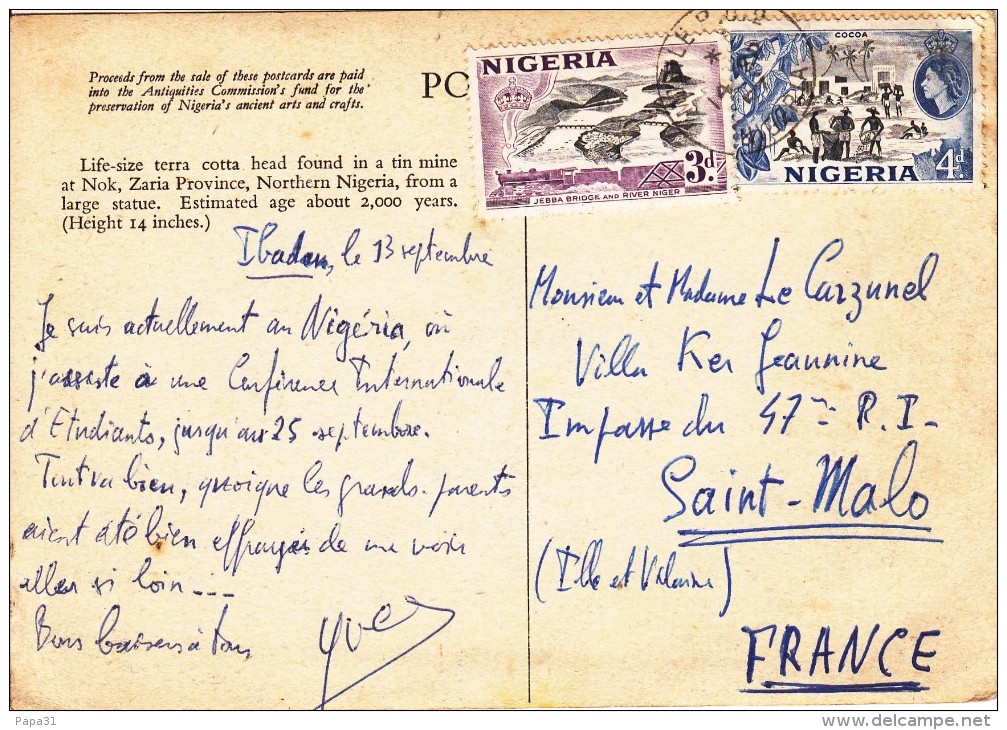 Proceeds from the sale of these postcards are paid
into the Antiquities Commission's fund for the
preservation of Nigeria's ancient arts and crafts.
PO
Life-size terra cotta head found in a tin mine
at Nok, Zaria Province, Northern Nigeria, from a
large statue. Estimated age about 2,000 years.
(Height 14 inches.)
NIGERIA
3d.
JEBBA BRIDGE AND RIVER NIGER
COCOA
NIGERIA
4d.
Ibadan, le 13 septembre
Je suis actuellement au Nigéria, où
j'assiste à une Conférence Internationale
d'Etudiants, jusqu'au 25 septembre.
Tout va bien, quoique les grands-parents
aient été bien effrayés de me voir
aller si loin...
Bons baisers à tous
Yves
Monsieur et Madame Le Carzunel
Villa Ker Jeannine
Impasse du 47me R.I.
Saint-Malo
(Ille et Vilaine)
FRANCE
Papa31
www.delcampe.net